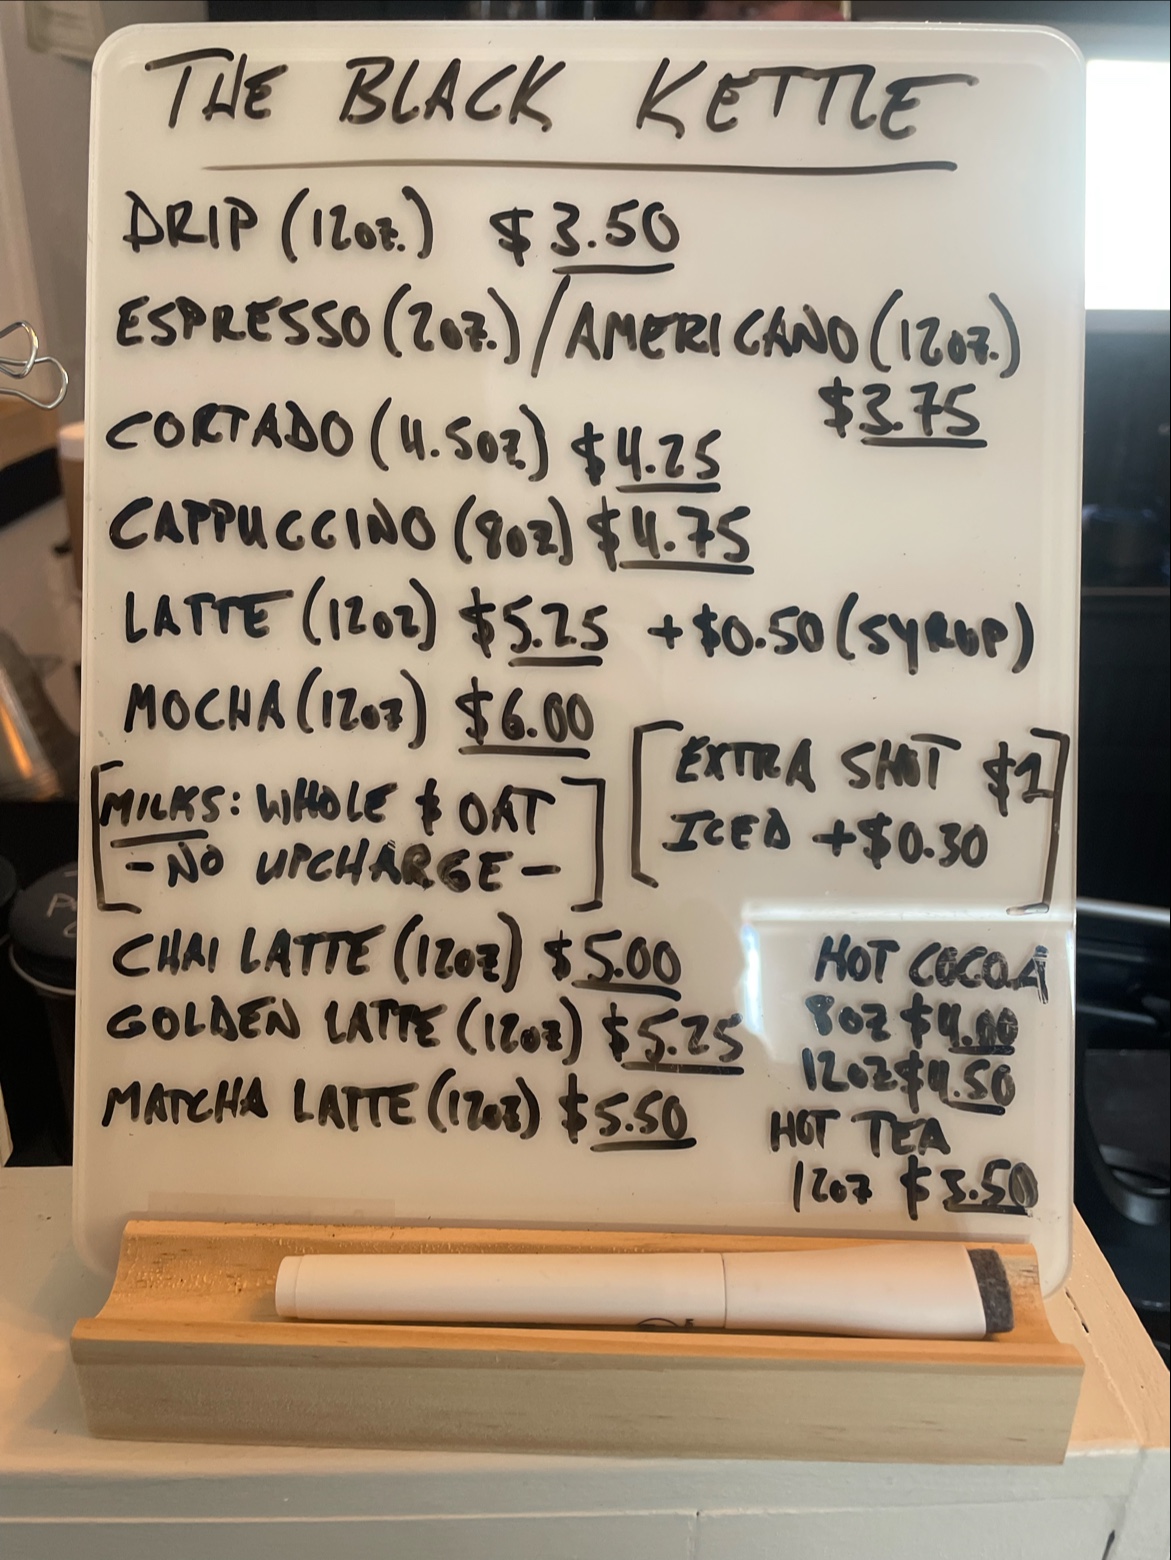 THE BLACK KETTLE
DRIP (12oz.) $3.50
ESPRESSO (2oz.) / AMERICANO (12oz.)
$3.75
CORTADO (4.5oz) $4.25
CAPPUCCINO (8oz) $4.75
LATTE (12oz) $5.25 +$0.50 (SYRUP)
MOCHA (12oz) $6.00
[MILKS: WHOLE & OAT
-NO UPCHARGE-]
[EXTRA SHOT $1
ICED +$0.30]
CHAI LATTE (12oz) $5.00
GOLDEN LATTE (12oz) $5.25
MATCHA LATTE (12oz) $5.50
HOT COCOA
8oz $4.00
12oz $4.50
HOT TEA
12oz $3.50